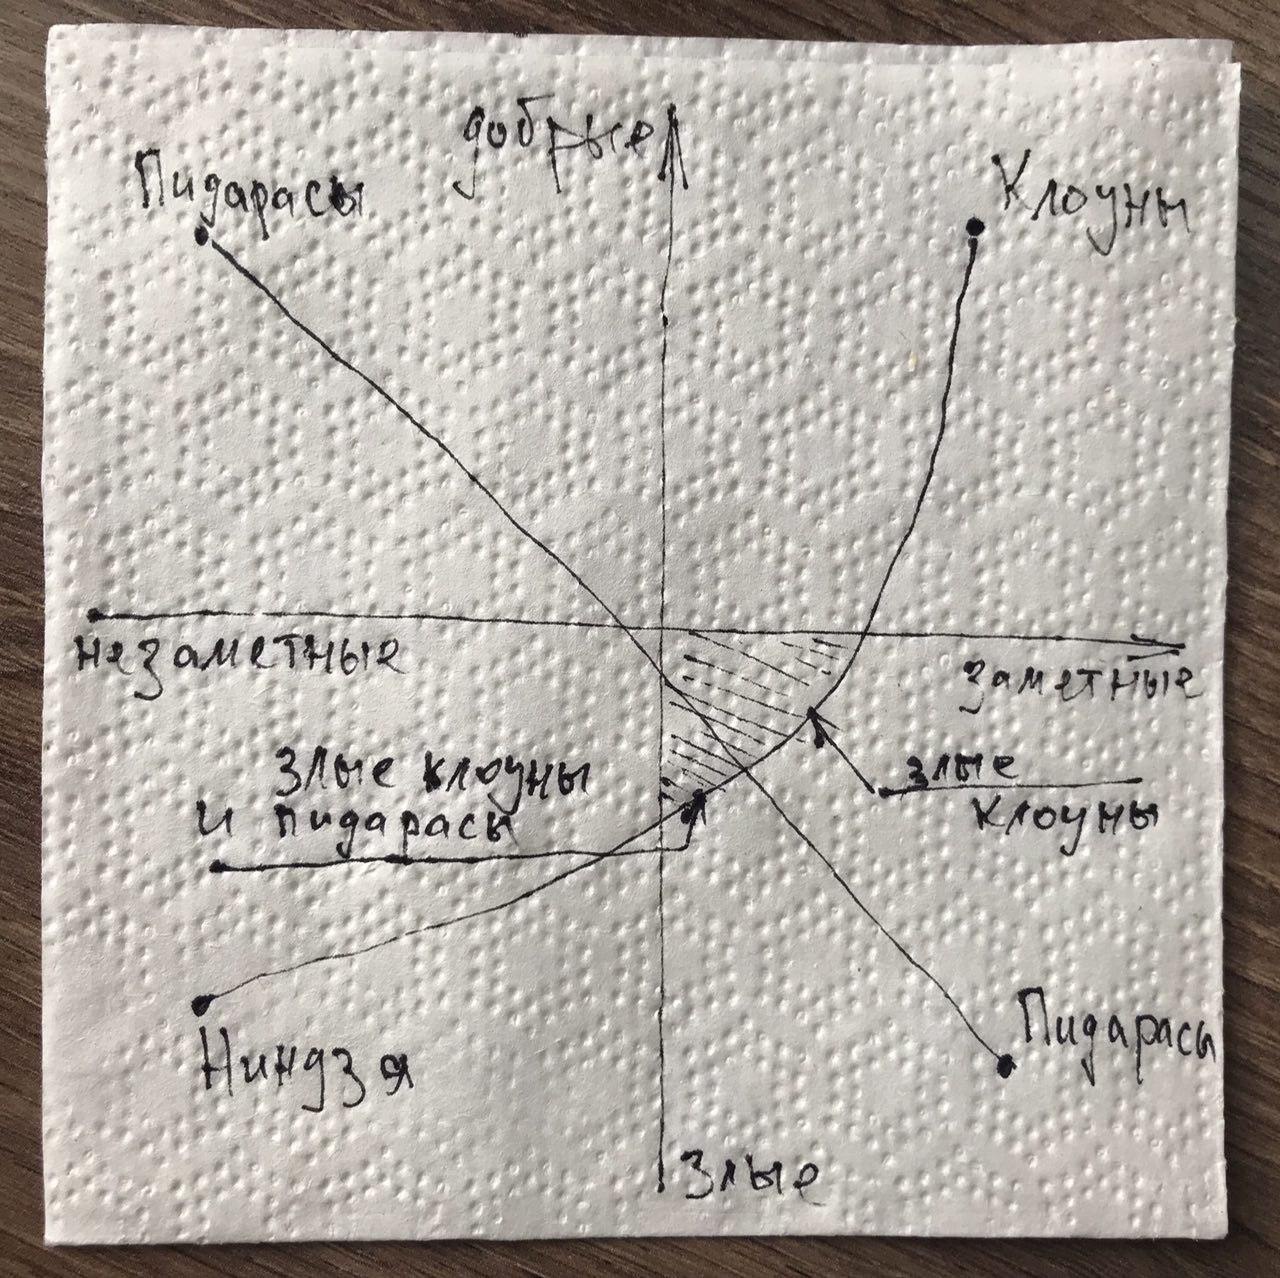 добрые
Пидарасы
Клоуны
незаметные
заметные
злые клоуны
и пидарасы
злые
клоуны
Пидарасы
Ниндзя
Злые